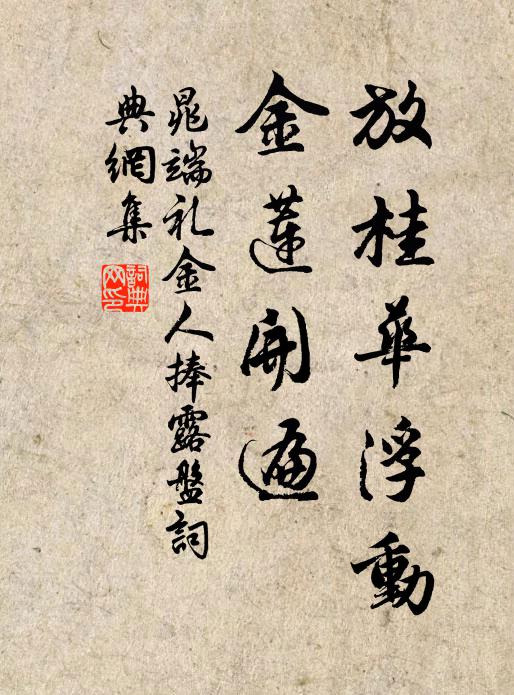 放桂華浮動
金蓮開遍
晁端礼金人捧露盤詞
典網集
詞典網印